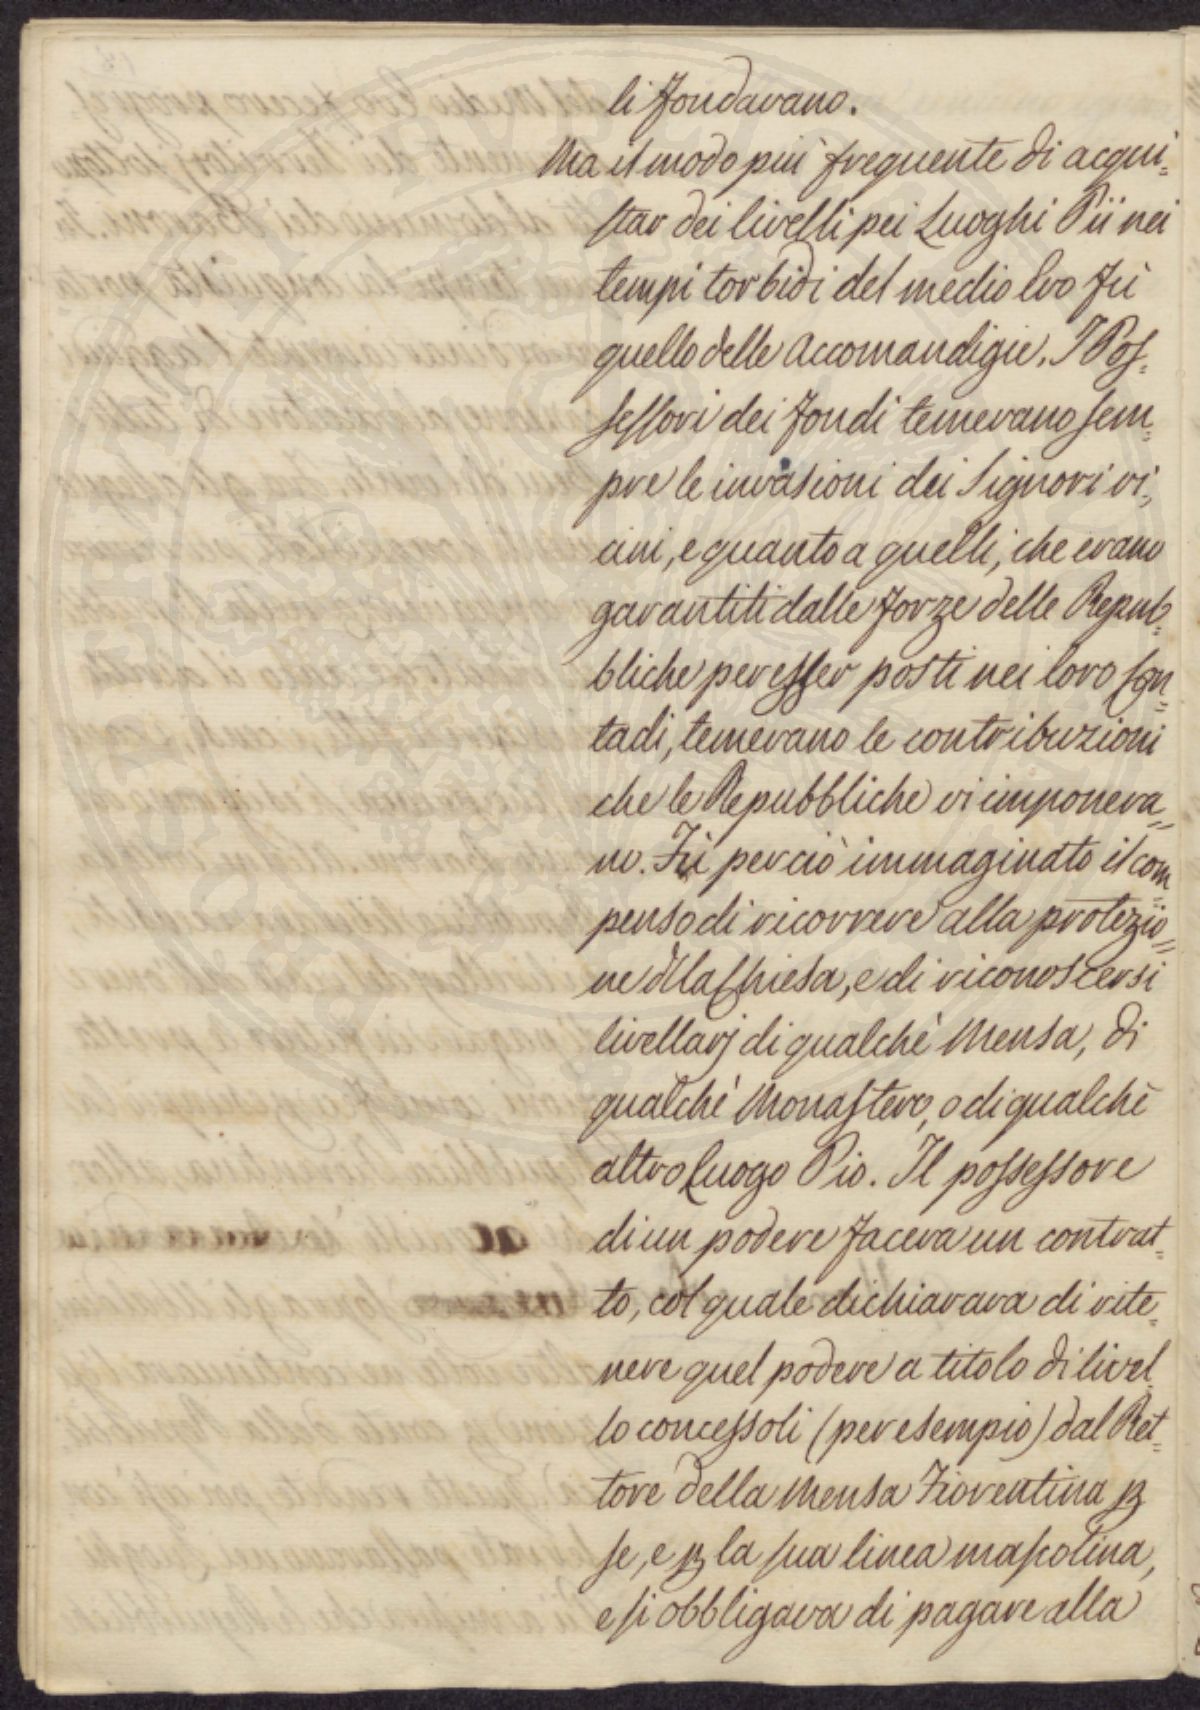 li fondavano.
Ma il modo più frequente di acqui=
star dei livelli pei Luoghi Pii nei
tempi torbidi del medio Evo fù
quello delle Accomandigie. I Pos=
sessori dei fondi temevano sem=
pre le invasioni dei Signori vi=
cini, e quanto a quelli, che erano
garantiti dalle forze delle Repub=
bliche per esser posti nei loro Con=
tadi, temevano le contribuzioni
che le Repubbliche vi imponeva=
no. Fù perciò immaginato il com=
penso di ricorrere alla protezio=
ne dlla Chiesa, e di riconoscersi
livellarj di qualchè Mensa, di
qualchè Monastero, o di qualchè
altro Luogo Pio. Il possessore
di un podere faceva un contrat=
to, col quale dichiarava di rite=
nere quel podere a titolo di livel=
lo concessoli (per esempio) dal Ret=
tore della Mensa Fiorentina ꝑ
se, e ꝑ la sua linea mascolina,
e si obbligava di pagare alla